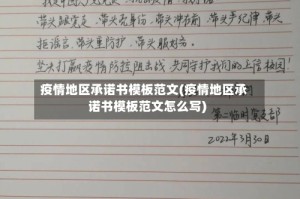 带头献爱心、带头贡身份、带头冲在前、带头守纪律、带头
拒谣言、带头重防护、带头服好务。
坚决打赢疫情防控阻击战,共同守护我们的上信校园!
疫情地区承诺书模板范文(疫情地区承
诺书模板范文怎么写)
第二临时党支部
2022年3月30日